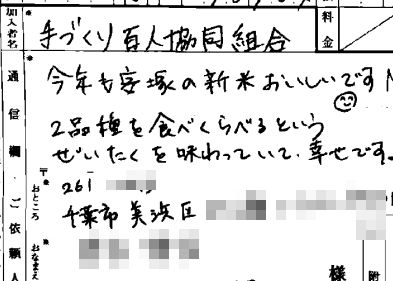 加入者名
手づくり百人協同組合
料金
通信欄・ご依頼人
今年も安塚の新米おいしいです
2品種を食べくらべるという
ぜいたくを味わっていて、幸せです。
〒 261
おところ
千葉市美浜区
おなまえ
様
附